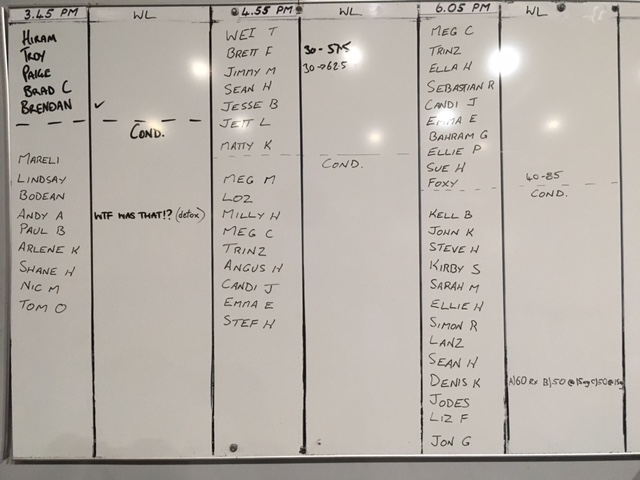 3.45 PM
WL
HIRAM
TROY
PAIGE
BRAD C
BRENDAN ✓
COND.
MARELI
LINDSAY
BODEAN
ANDY A WTF WAS THAT!? (detox)
PAUL B
ARLENE K
SHANE H
NIC M
TOM O
4.55 PM
WL
WEI T
BRETT F 30-57.5
JIMMY M 30→62.5
SEAN H
JESSE B
JETT L
MATTY K
COND.
MEG M
LOZ
MILLY H
MEG C
TRINZ
ANGUS H
CANDI J
EMMA E
STEF H
6.05 PM
WL
MEG C
TRINZ
ELLA H
SEBASTIAN R
CANDI J
EMMA E
BAHRAM G
ELLIE P
SUE H
FOXY 40-85
COND.
KELL B
JOHN K
STEVE H
KIRBY S
SARAH M
ELLIE H
SIMON R
LANZ
SEAN H
DENIS K A)60 Rx B)50@15kg C)50@15kg
JODES
LIZ F
JON G